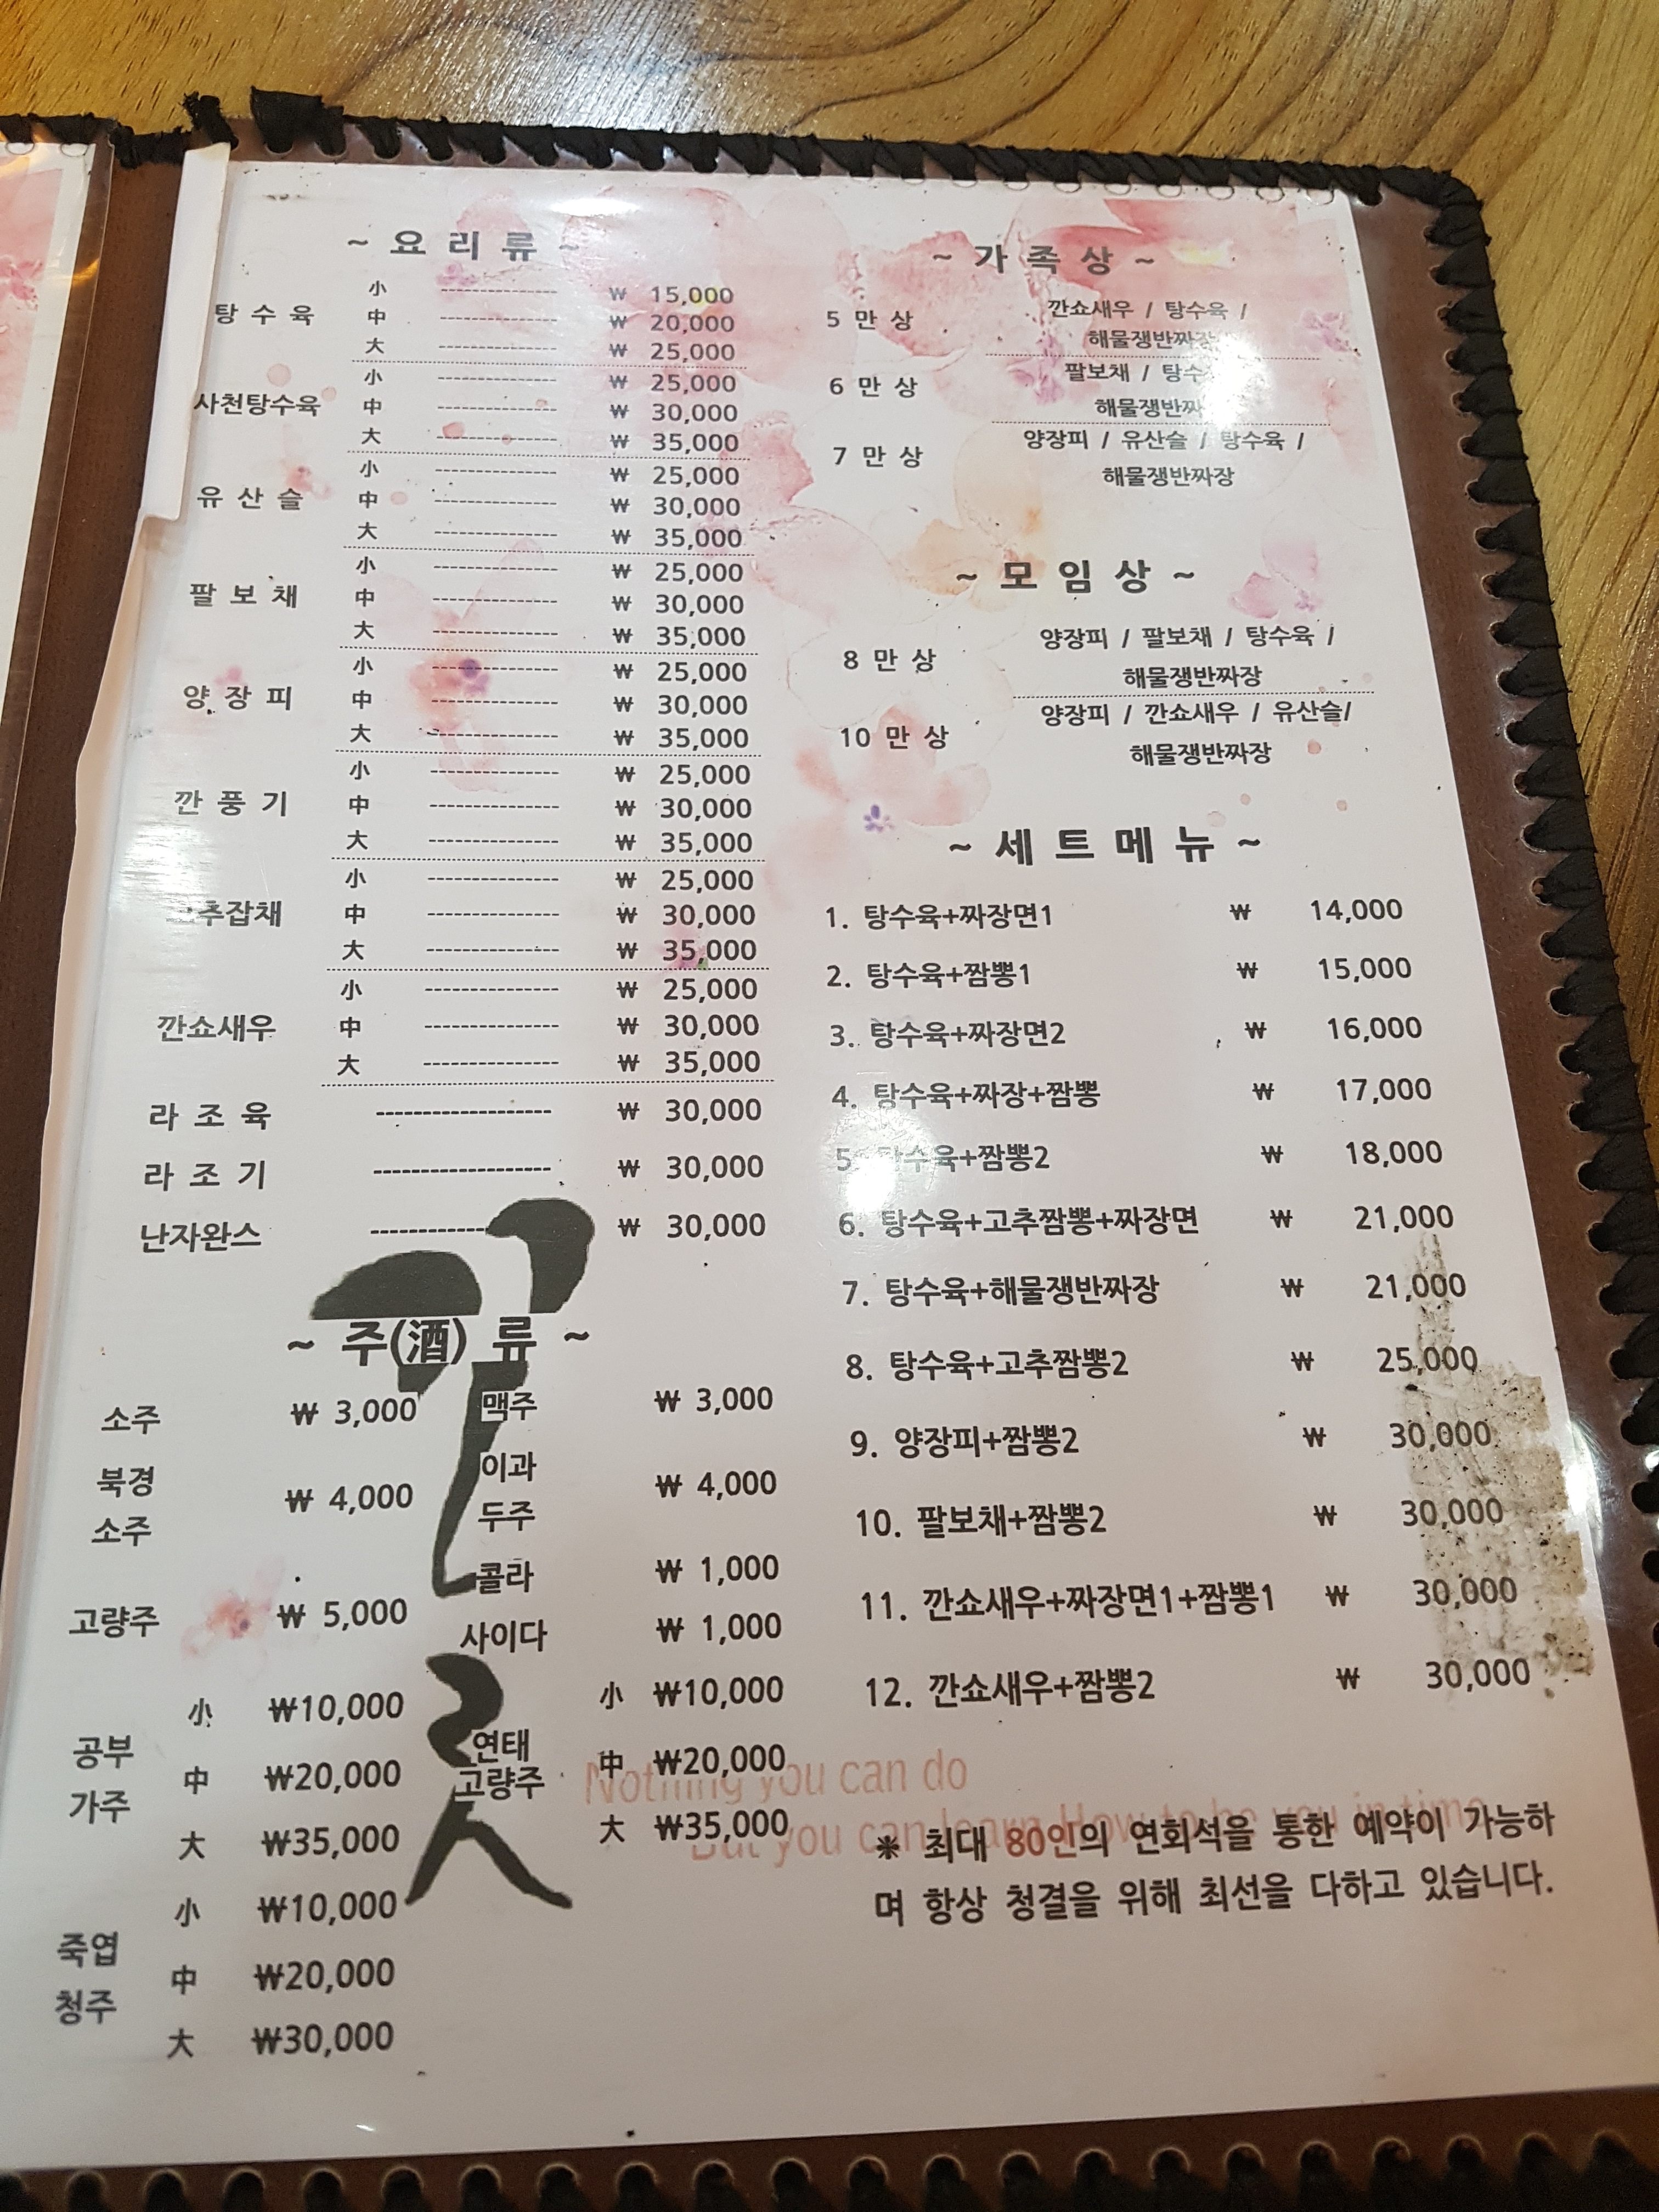 ~ 요 리 류 ~
탕 수 육
小 ₩ 15,000
中 ₩ 20,000
大 ₩ 25,000
사천탕수육
小 ₩ 25,000
中 ₩ 30,000
大 ₩ 35,000
유 산 슬
小 ₩ 25,000
中 ₩ 30,000
大 ₩ 35,000
팔 보 채
小 ₩ 25,000
中 ₩ 30,000
大 ₩ 35,000
양 장 피
小 ₩ 25,000
中 ₩ 30,000
大 ₩ 35,000
깐 풍 기
小 ₩ 25,000
中 ₩ 30,000
大 ₩ 35,000
추잡채
小 ₩ 25,000
中 ₩ 30,000
大 ₩ 35,000
깐쇼새우
小 ₩ 25,000
中 ₩ 30,000
大 ₩ 35,000
라 조 육 ₩ 30,000
라 조 기 ₩ 30,000
난자완스 ₩ 30,000
~ 주(酒) 류 ~
소주 ₩ 3,000
북경
소주 ₩ 4,000
고량주 ₩ 5,000
공부
가주
小 ₩10,000
中 ₩20,000
大 ₩35,000
죽엽
청주
小 ₩10,000
中 ₩20,000
大 ₩30,000
맥주 ₩ 3,000
이과
두주 ₩ 4,000
콜라 ₩ 1,000
사이다 ₩ 1,000
연태
고량주
小 ₩10,000
中 ₩20,000
大 ₩35,000
~ 가 족 상 ~
5 만 상
깐쇼새우 / 탕수육 /
해물쟁반짜장
6 만 상
팔보채 / 탕수
해물쟁반짜
7 만 상
양장피 / 유산슬 / 탕수육 /
해물쟁반짜장
~ 모 임 상 ~
8 만 상
양장피 / 팔보채 / 탕수육 /
해물쟁반짜장
10 만 상
양장피 / 깐쇼새우 / 유산슬/
해물쟁반짜장
~ 세 트 메 뉴 ~
1. 탕수육+짜장면1 ₩ 14,000
2. 탕수육+짬뽕1 ₩ 15,000
3. 탕수육+짜장면2 ₩ 16,000
4. 탕수육+짜장+짬뽕 ₩ 17,000
5. 탕수육+짬뽕2 ₩ 18,000
6. 탕수육+고추짬뽕+짜장면 ₩ 21,000
7. 탕수육+해물쟁반짜장 ₩ 21,000
8. 탕수육+고추짬뽕2 ₩ 25,000
9. 양장피+짬뽕2 ₩ 30,000
10. 팔보채+짬뽕2 ₩ 30,000
11. 깐쇼새우+짜장면1+짬뽕1 ₩ 30,000
12. 깐쇼새우+짬뽕2 ₩ 30,000
Nothing you can do
But you can learn How to be you in time
※ 최대 80인의 연회석을 통한 예약이 가능하
며 항상 청결을 위해 최선을 다하고 있습니다.